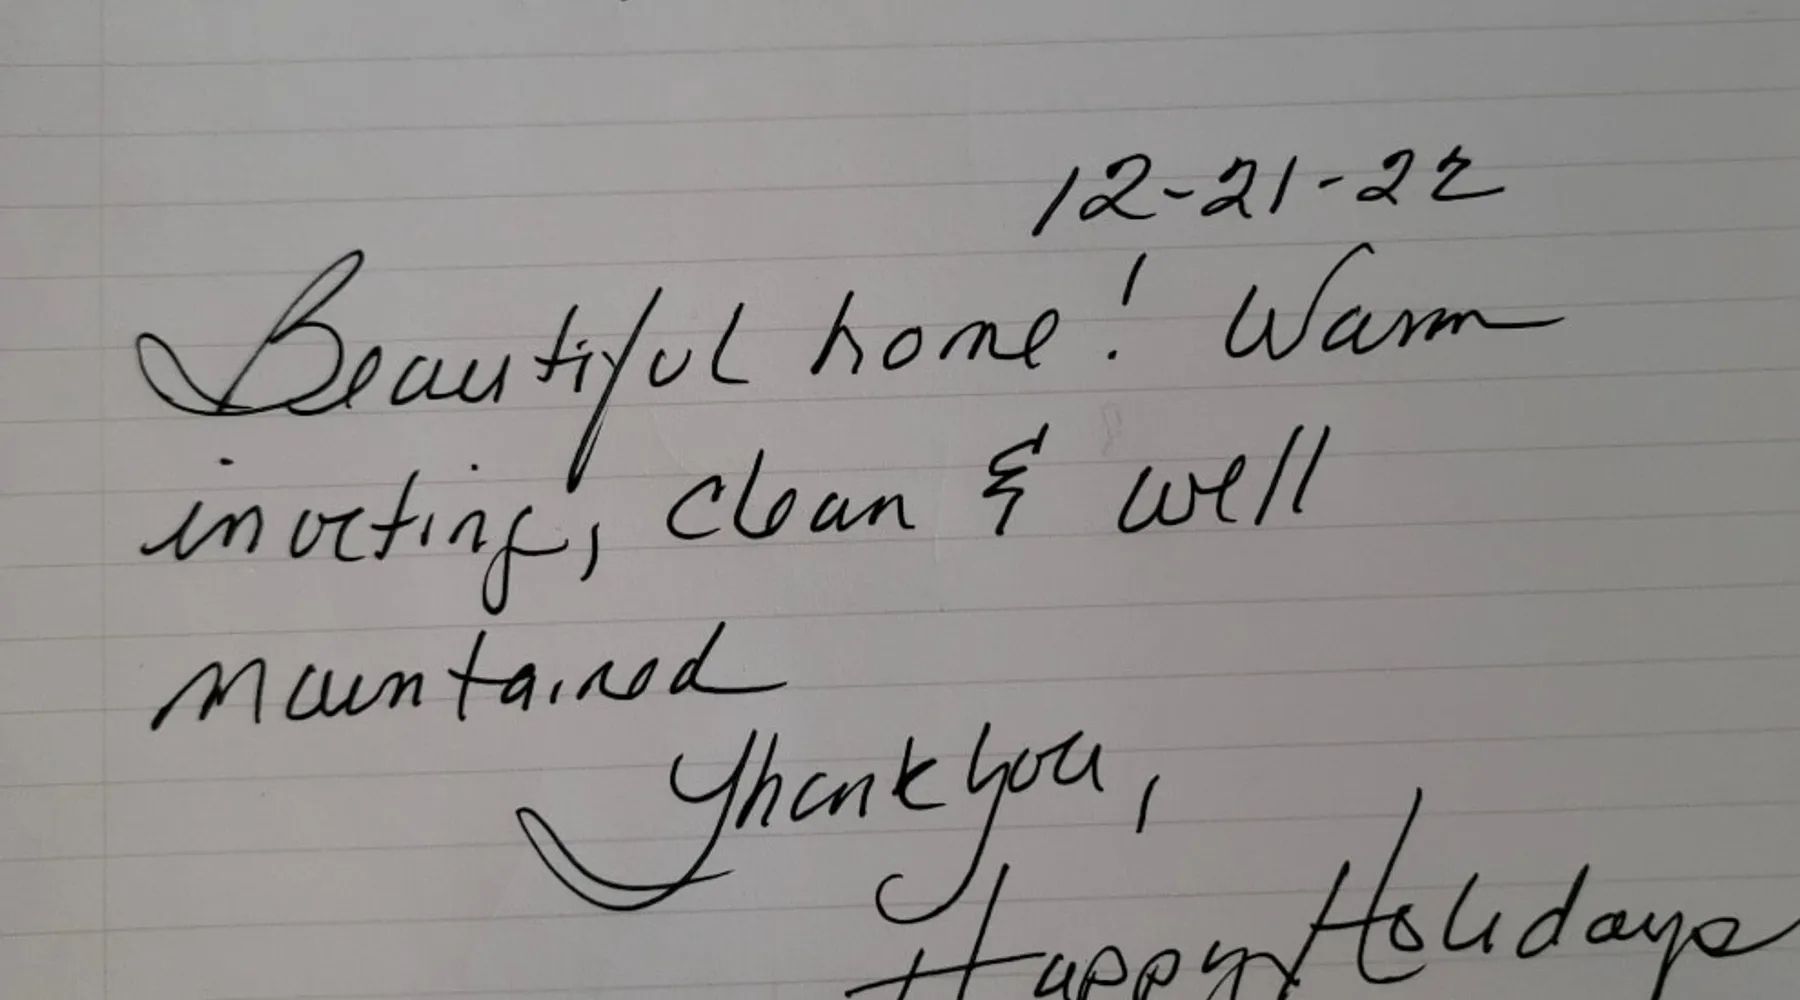 12-21-22
Beautiful home! Warm
inviting, clean & well
maintained
Thank you,
Happy Holidays